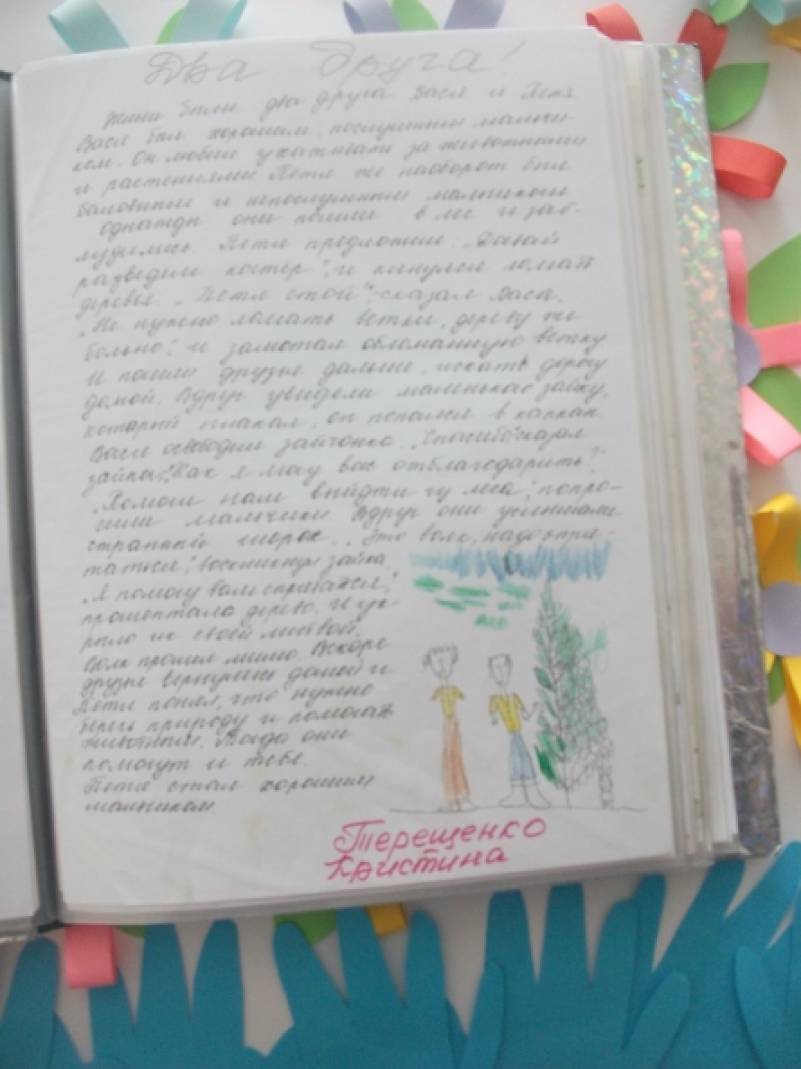 Два друга!
Жили были два друга Вася и Петя
Вася был хорошим, послушным мальчи-
ком. Он любил ухаживать за животными
и растениями. Петя же наоборот был
баловным и непослушным мальчиком
однажды они пошли в лес и заб-
лудились. Петя предложил: „Давай
разведём костёр", и кинулся ломать
деревья. „Петя стой!", сказал Вася,
„Не нужно ломать ветки, дереву же
больно!" и замотал обломанную ветку
И пошли друзья дальше, искать дорогу
домой. Вдруг увидели маленького зайку,
который плакал, он попался в капкан
Вася освободил зайчонка „Спасибо" сказал
зайка „Как я могу вас отблагодарить?"
„Помоги нам выйти из леса", попро-
сили мальчики. Вдруг они услышали
странный шорох. „Это волк, надо спря-
таться", воскликнул зайка
„Я помогу вам спрятаться",
прошептало дерево. И ук-
рыло их своей листвой.
Волк прошел мимо. Вскоре
друзья вернулись домой и
Петя понял, что нужно
беречь природу и помогать
животным. Тогда они
помогут и тебе.
Петя стал хорошим
мальчиком.
Терещенко
Кристина